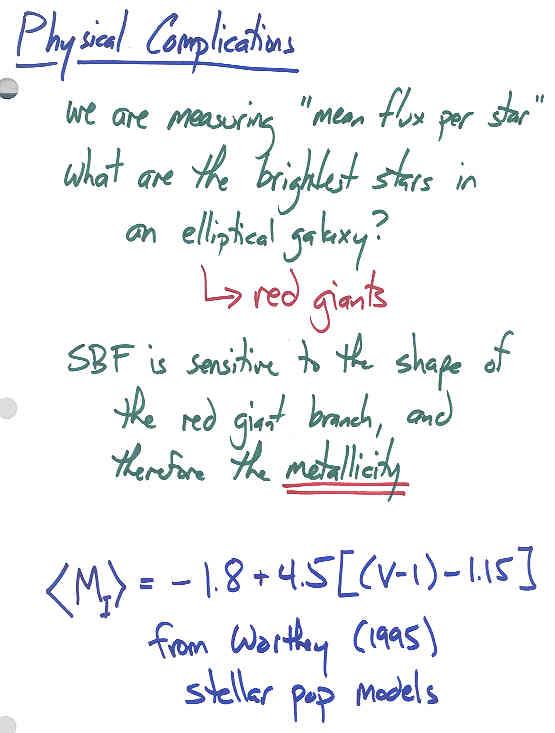 Physical Complications
we are measuring "mean flux per star"
what are the brightest stars in
an elliptical galaxy?
↳ red giants
SBF is sensitive to the shape of
the red giant branch, and
therefore the metallicity
⟨M_I⟩ = -1.8 + 4.5[(V-I)-1.15]
from Worthey (1995)
stellar pop models